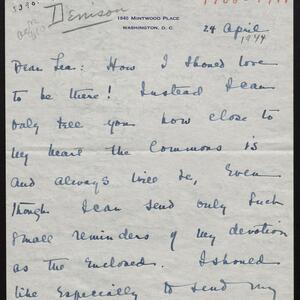 Denison
1840 MINTWOOD PLACE
WASHINGTON, D. C.
24 April
1944
Dear Lea: How I should love
to be there! Instead I can
only tell you how close to
my heart the Commons is
and always will be, Even
though I can send only such
small reminders of my devotion
as the enclosed. I should
like Especially to send my